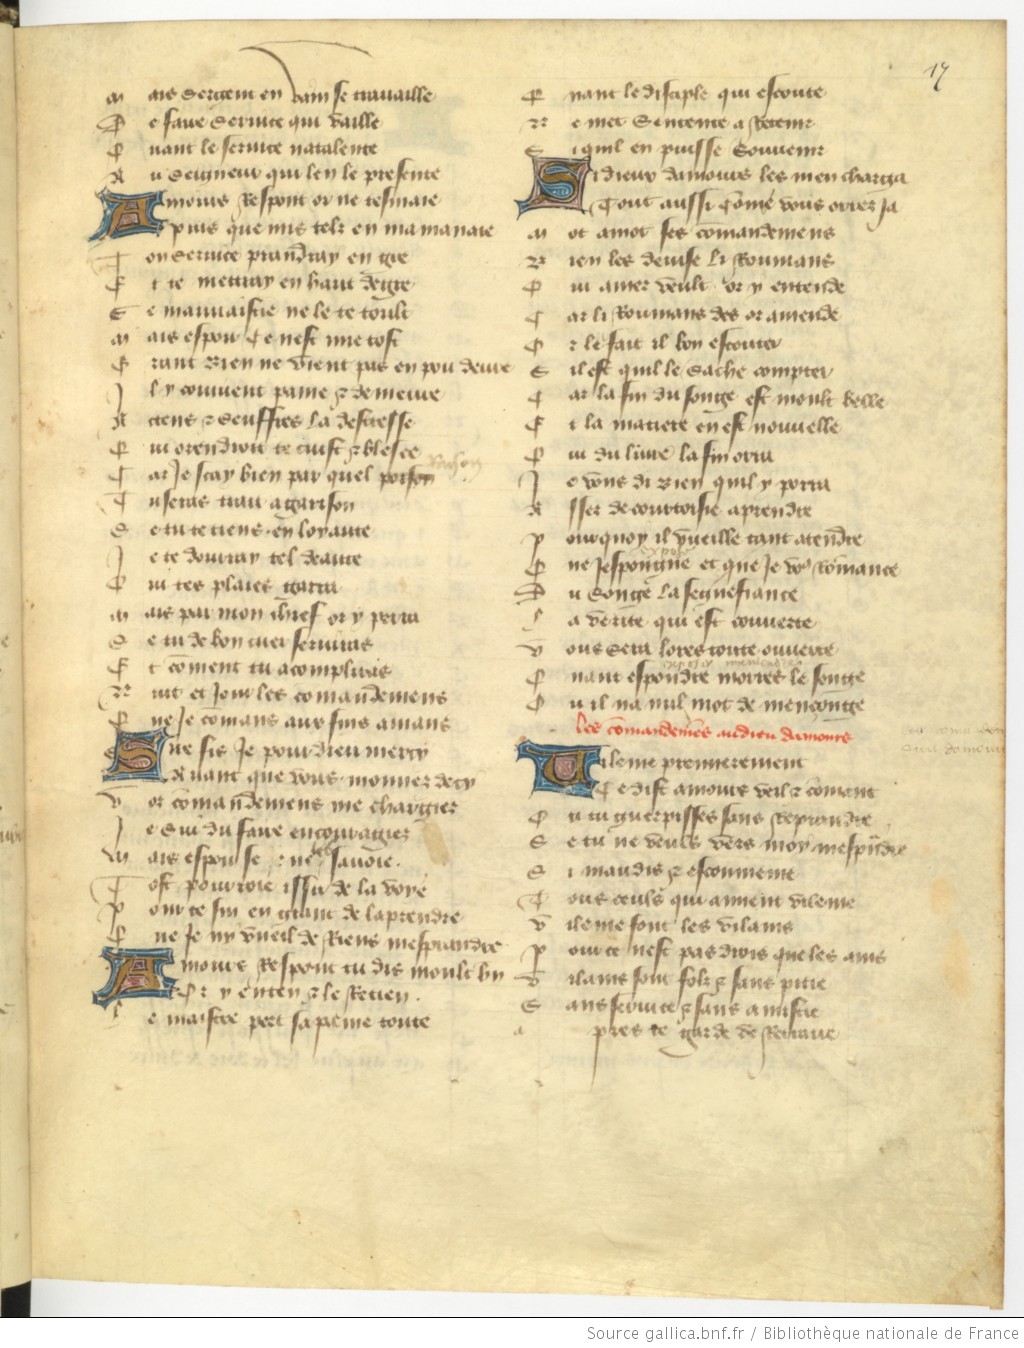 17
Mais sergent en vain se travaille
De faire service qui vaille
Quant le service natalente
Au seigneur qui len le presente
Amours respont or ne tesmaie
Puis que mis tes en ma manaie
Ton service prandray en gre
Et te mettray en hault degre
Se mauvaistie ne le te toult
Mais espoir ce nest mie tost
Grant bien ne vient pas en pou deure
Il y convient paine & demeure
Atens & seuffres la destresse
Qui orendroit te cuist & blesce
Car Je scay bien par quel poison
Tu seras trait a garison
Se tu te tiens en loyaute
Je te donrray tel deaute
Qui tes plaies garra
Mais par mon chief or y perra
Se tu de bon cuer serviras
Et coment tu acompliras
Nuit et Jour les comandemens
Que Je comans aux fins amans
Sire fis Je pour dieu mercy
Avant que vous mouvez de cy
Voz comandemens me chargiez
Je sui du faire encouragiez
Mais espoir se Je ne les savoie
Tost pourroie issir de la voye
Pour ce sui en grant de laprendre
Que Je ny vueil de riens mesprandre
Amours respont tu dis moult bn
Or y enten & le retien
Le maistre pert sa peine toute
Quant le disciple qui escoute
Ne met sentente a retenir
Si quil en puisse souvenir
Li dieux damours les men charga
Tout aussi come vous orrez Ja
Mot a mot ses comandemens
Bien les devise li Roumans
Qui amer veult or y entende
Car li Roumans des or amende
Or le fait il bon escouter
Sil est qui le sache compter
Car la fin du songe est moult belle
Et la matiere en est nouvelle
Qui du livre la fin orra
Je vous di bien quil y porra
Assez de courtoisie aprendre
Pourquoy il vueille tant atendre
Que Jespongne et que Je vo romance
Du songe la segnefiance
La verite qui est couverte
Vous sera lores toute ouverte
Quant espondre morres le songe
Ou il na nul mot de menconge
Les comandemens au dieu damours
Vilenie premierement
Ce dist amours veil & comant
Que tu guerpisses sans reprandre
Se tu ne veuls vers moy mesprendre
Si maudis & escommenie
Tous ceuls qui aiment vilenie
Vilenie font les vilains
Pour ce nest pas drois que les ains
Vilains sont fols & sans pitie
Sans service & sans amistie
Apres te garde de retraire